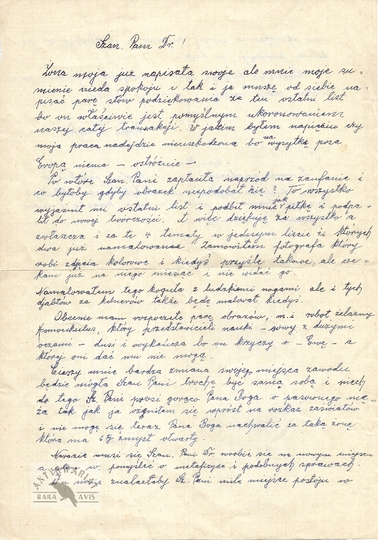 Szan. Pani Dr. !
Żona moja już napisała swoje ale mnie moje su-
mienie nieda spokoju i tak i ja muszę od siebie na-
pisać parę słów podziękowania za ten ostatni list
bo on właściwie jest pomyślnym ukoronowaniem
naszej całej transakcji. W jakim byłem napięciu czy
moja praca nadejdzie nieuszkodzona bo wysyłka poza
Europą niema – ostrożnie –
Po wtóre Szan Pani zapłaciła naprzód na zaufanie i
co byłoby gdyby obrazek niepodobał się? To wszystko
wyjaśnił mi ostatni list i podbił mnie jak piłkę i podpa-
lił do nowej twórczości. A więc dziękuję za wszystko a
zwłaszcza i za te 4 tematy, w jedynym liście z których
dwa już namalowane. Zamówiłem fotografa który
robi zdjęcia kolorowe i kiedyś prześlę takowe, ale cze-
kam już na niego miesiąc i nie widać go.
Namalowałem tego koguta z ludzkiemi nogami ale i tych
djabłów za kelnerów także będę malował kiedyś.
Obecnie mam rozpoczęte parę obrazów, m.i robot żelazny
Homunkulus, który przedstawicielce nauki – sowy z dużymi
oczami – dusi i wykańcza bo on krzyczy o – Ewę – a
który oni dać mu nie mogą
Cieszy mnie bardzo zmiana swojego miejsca zawodu
będzie mogła Szan Pani trochę być sama sobą i niech
do tego Sz. Pani prosi gorąco Pana Boga o pasownego mę-
ża tak jak ja wprost na rozkaz zaświatów
i nie mogę się teraz Pana Boga nachwalić za taką żonę
która ma 6ty zmysł otwarty.
Narazie musi się Szan. Pani Dr. wrobić się na nowym miejscu
a w pomyśleć o metafizyce i podobnych sprawach.
może znalazłaby Sz. Pani miłe miejsce postoju w
ANTYKWARIAT
RARA AVIS